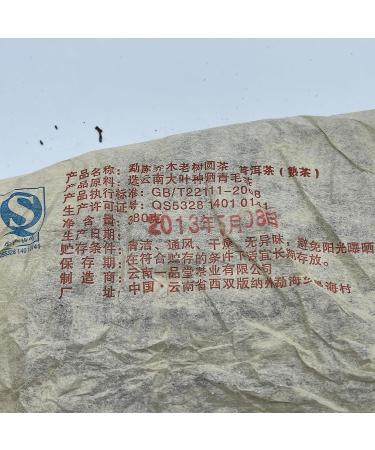 产品名称：勐库乔木老树圆茶 普洱茶（熟茶）
产品原料：选云南大叶种晒青毛茶
产品执行标准：GB/T22111-2008
生产许可证号：QS5328 1401 01
净含量：380克
生产日期：2013年5月08日
贮存条件：清洁、通风、干燥、无异味，避免阳光曝晒
保存期：在符合贮存的条件下适宜长期存放。
制造商：云南一品堂茶业有限公司
厂址：中国·云南省西双版纳 勐海乡勐海村
QS5328 1401